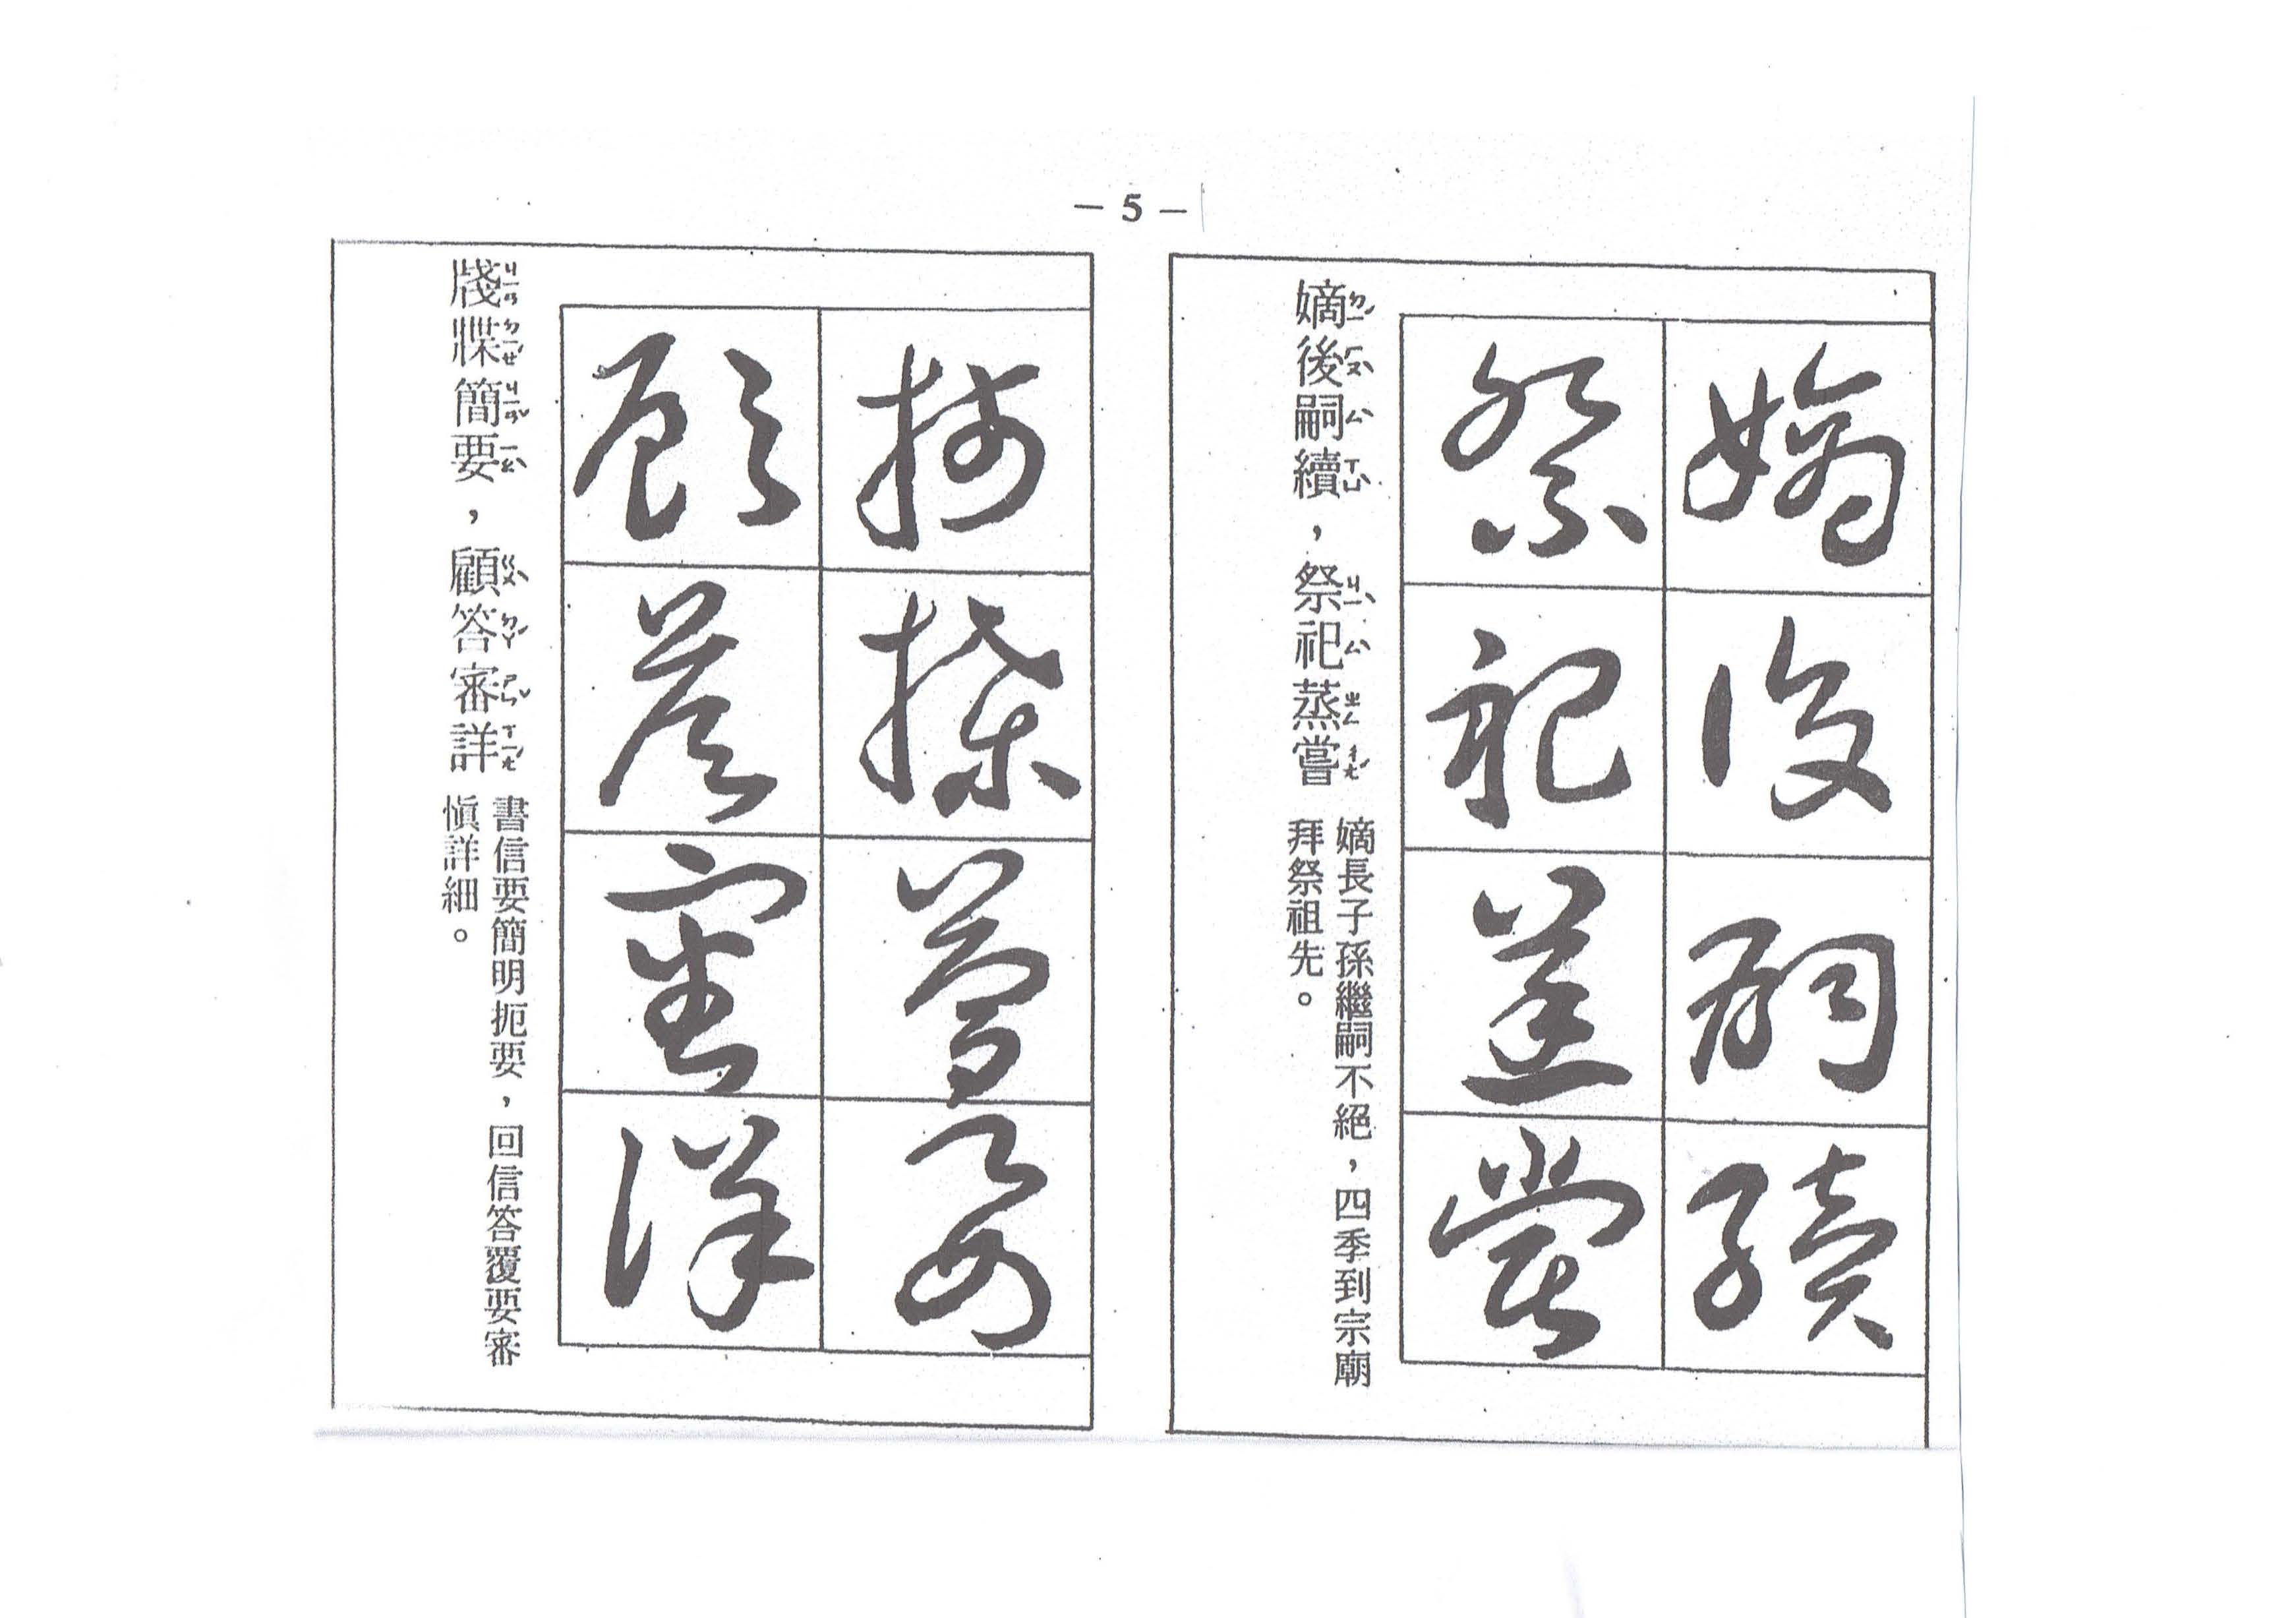 — 5 —
嫡後嗣續
祭祀蒸嘗
嫡ㄉㄧˊ後ㄏㄡˋ嗣ㄙˋ續ㄒㄩˋ，祭ㄐㄧˋ祀ㄙˋ蒸ㄓㄥ嘗ㄔㄤˊ
嫡長子孫繼嗣不絕，四季到宗廟
拜祭祖先。
牋牒簡要
顧答審詳
牋ㄐㄧㄢ牒ㄉㄧㄝˊ簡ㄐㄧㄢˇ要ㄧㄠˋ，顧ㄍㄨˋ答ㄉㄚˊ審ㄕㄣˇ詳ㄒㄧㄤˊ
書信要簡明扼要，回信答覆要審
愼詳細。